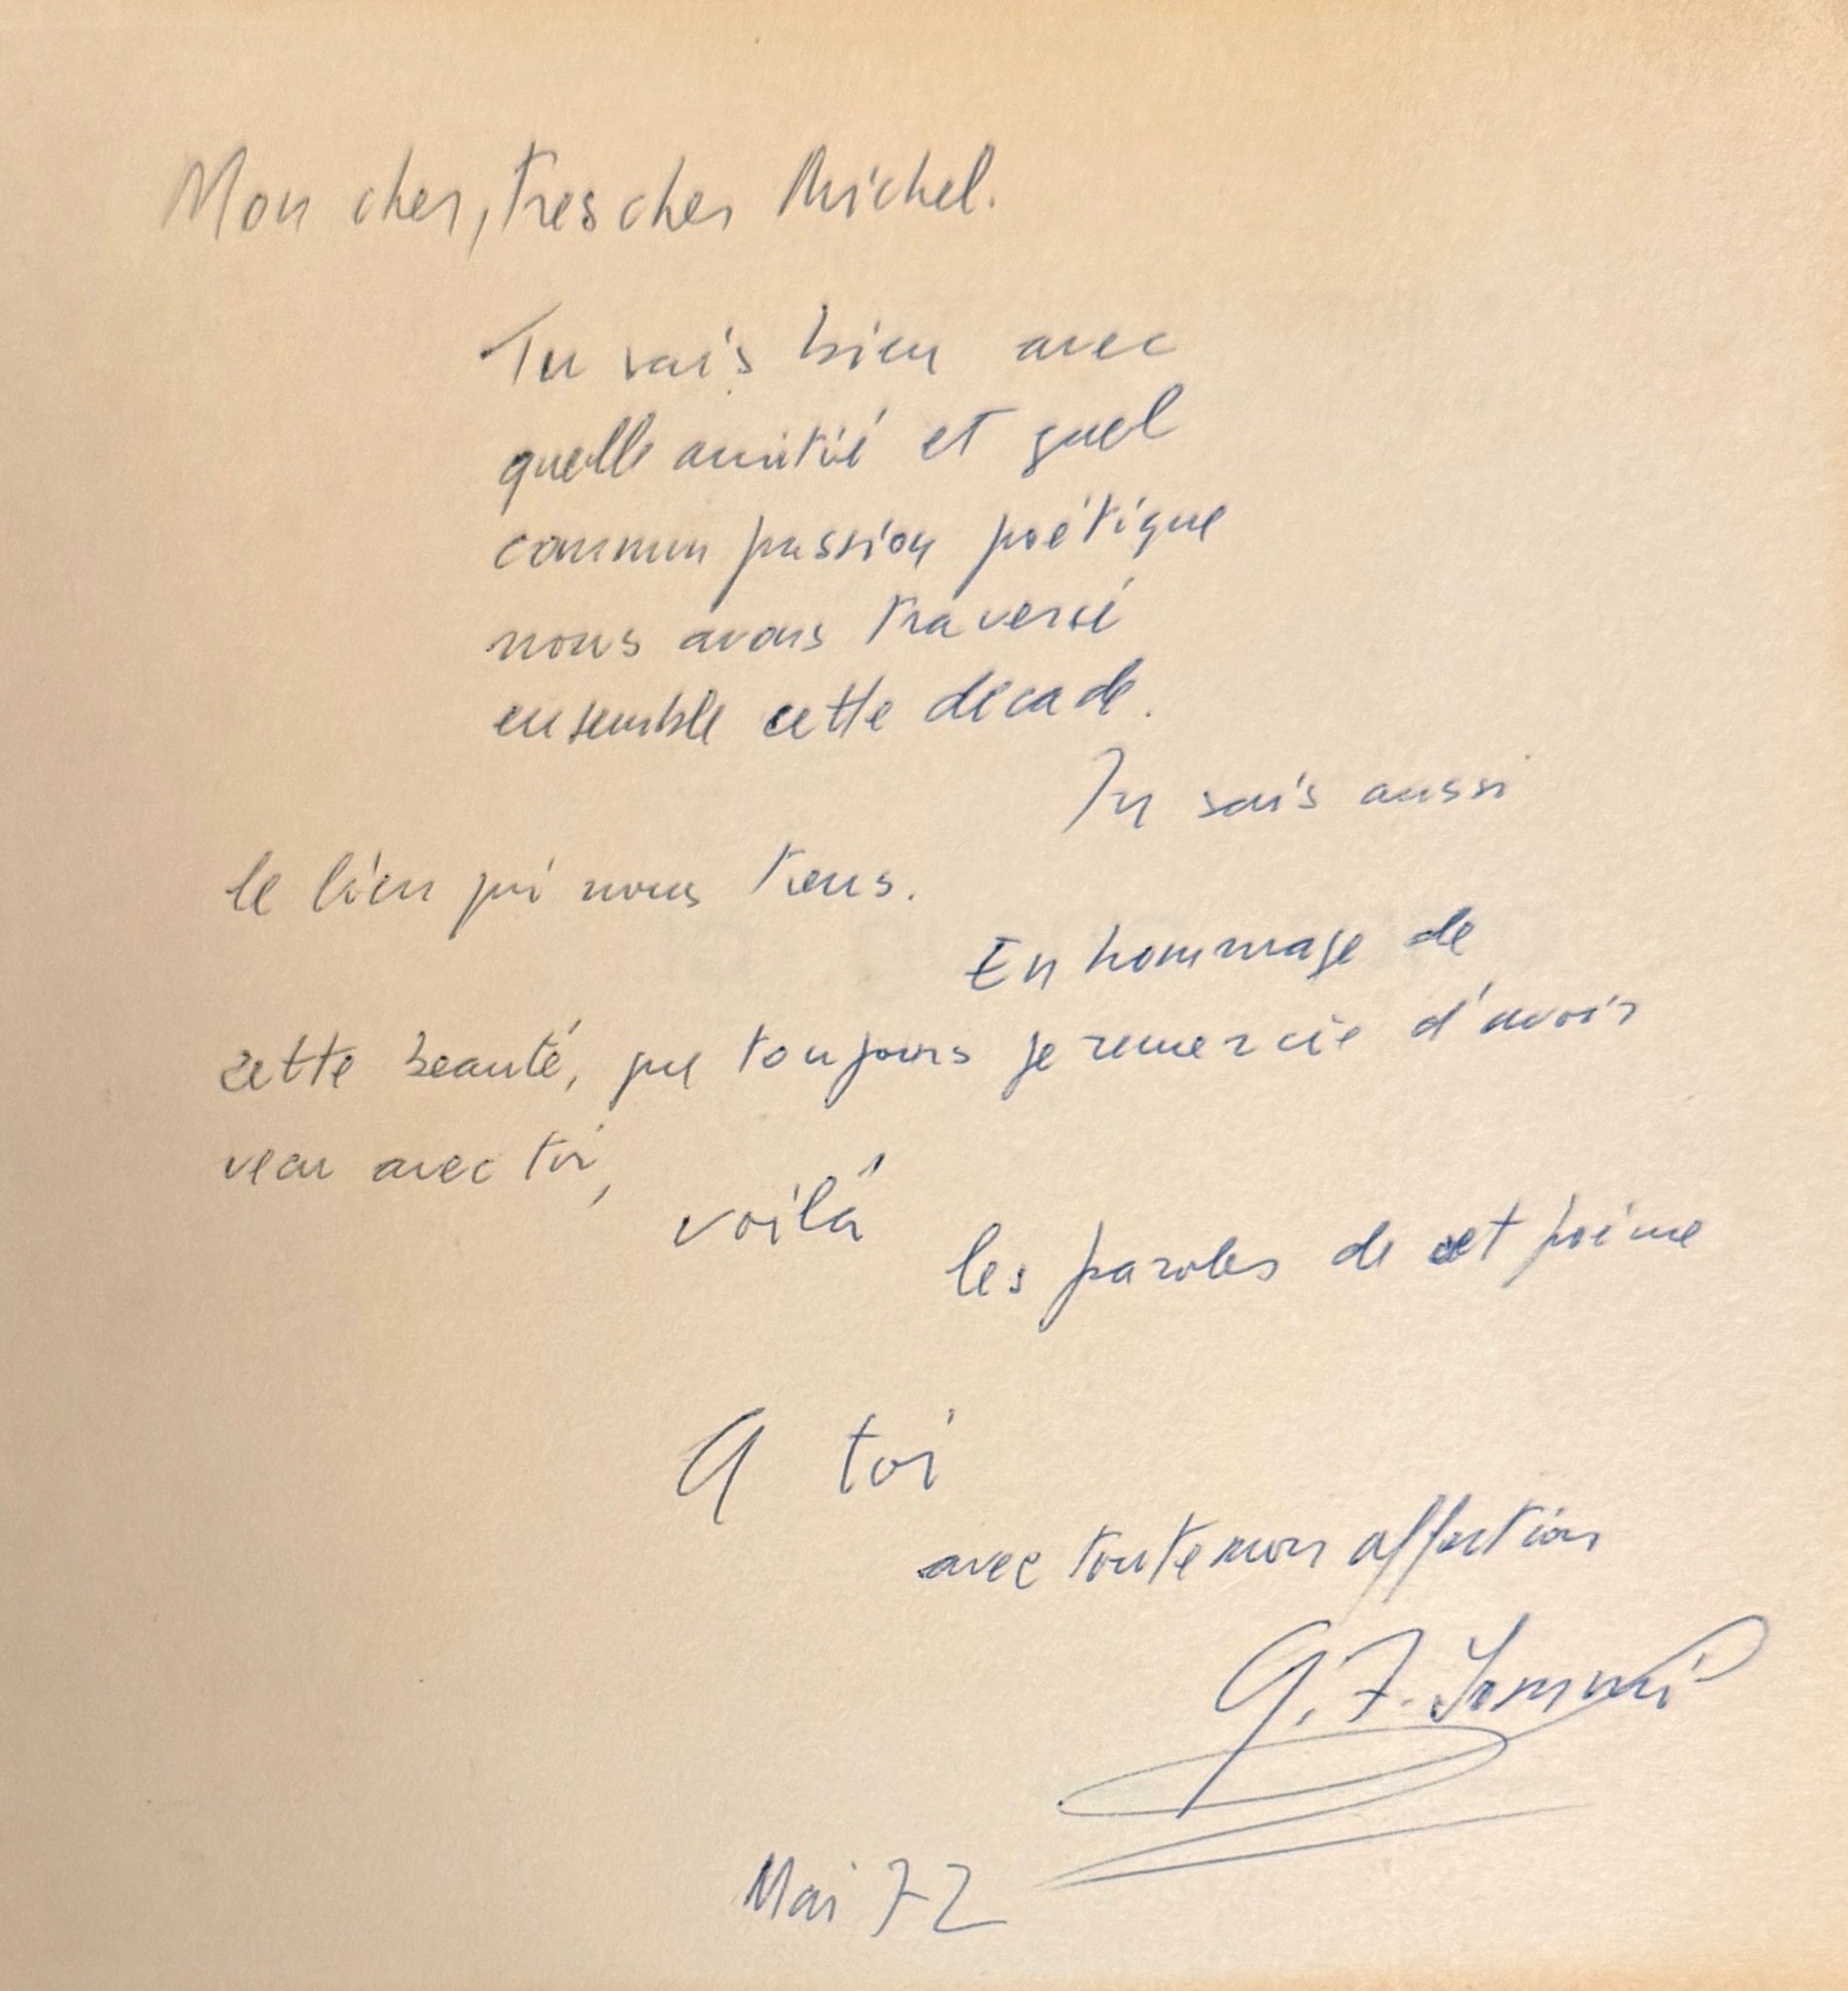 Mon cher, tres cher Michel.
Tu sais bien avec
quelle amitié et quel
commun passion poétique
nous avons traversé
ensemble cette décade.
Tu sais aussi
le lien qui nous tens.
En hommage de
cette beauté, que toujours je remercie d'avoir
vecu avec toi,
voilá
les paroles de cet poème
A toi
avec toute mon affection
G. F.
Mai 72